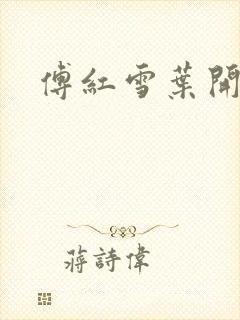 傅紅雪葉開
蔣詩偉